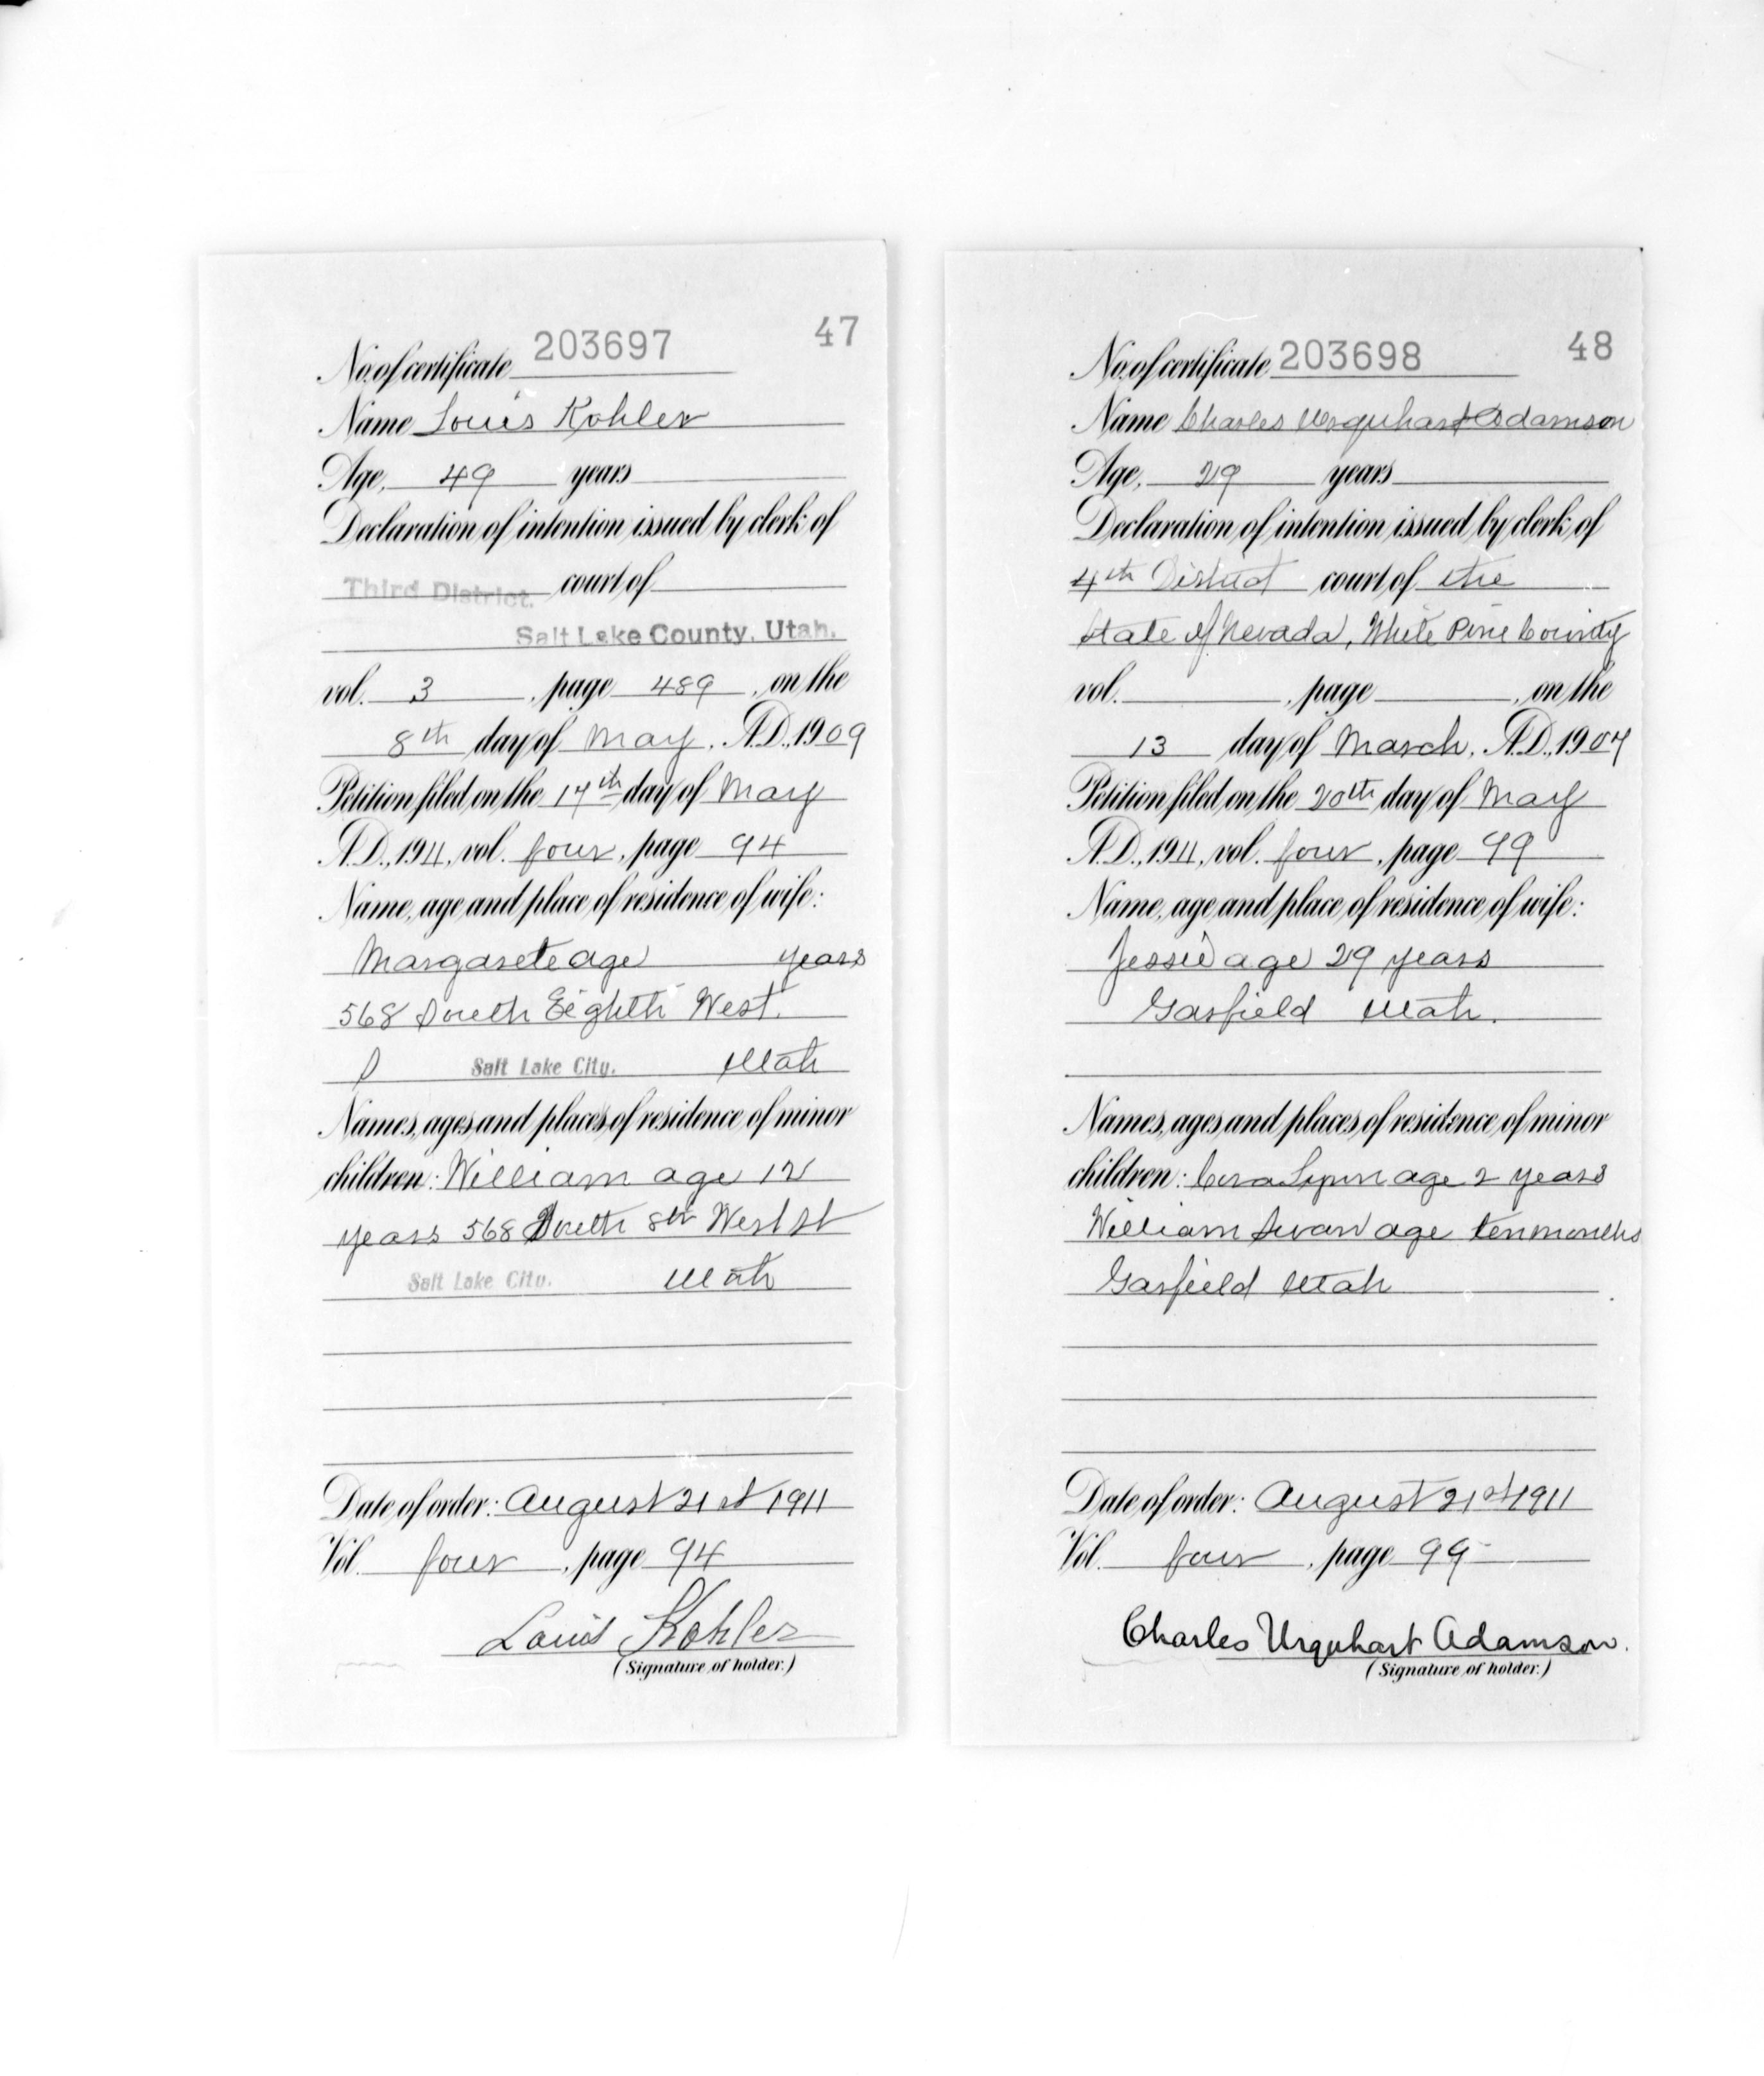 47
No. of certificate 203697
Name Louis Kohler
Age, 49 years
Declaration of intention issued by clerk of
Third District. court of
Salt Lake County, Utah.
vol. 3, page 489, on the
8th day of May, A.D., 1909
Petition filed on the 17th day of May
A.D., 1911, vol. four, page 94
Name, age and place of residence of wife:
Margarete age years
568 South Eighth West.
Salt Lake City. Utah
Names, ages and places of residence of minor
children: William age 12
years 568 South 8th West st
Salt Lake City. Utah
Date of order: August 21st 1911
Vol. four, page 94
Louis Kohler
(Signature of holder.)
48
No. of certificate 203698
Name Charles Urquhart Adamson
Age, 29 years
Declaration of intention issued by clerk of
4th District court of the
State of Nevada, White Pine County
vol. , page , on the
13 day of March, A.D., 1907
Petition filed on the 20th day of May
A.D., 1911, vol. four, page 99
Name, age and place of residence of wife:
Jessie age 29 years
Garfield Utah.
Names, ages and places of residence of minor
children: age 2 years
William age ten months
Garfield Utah
Date of order: August 21st 1911
Vol. four, page 99
Charles Urquhart Adamson.
(Signature of holder.)